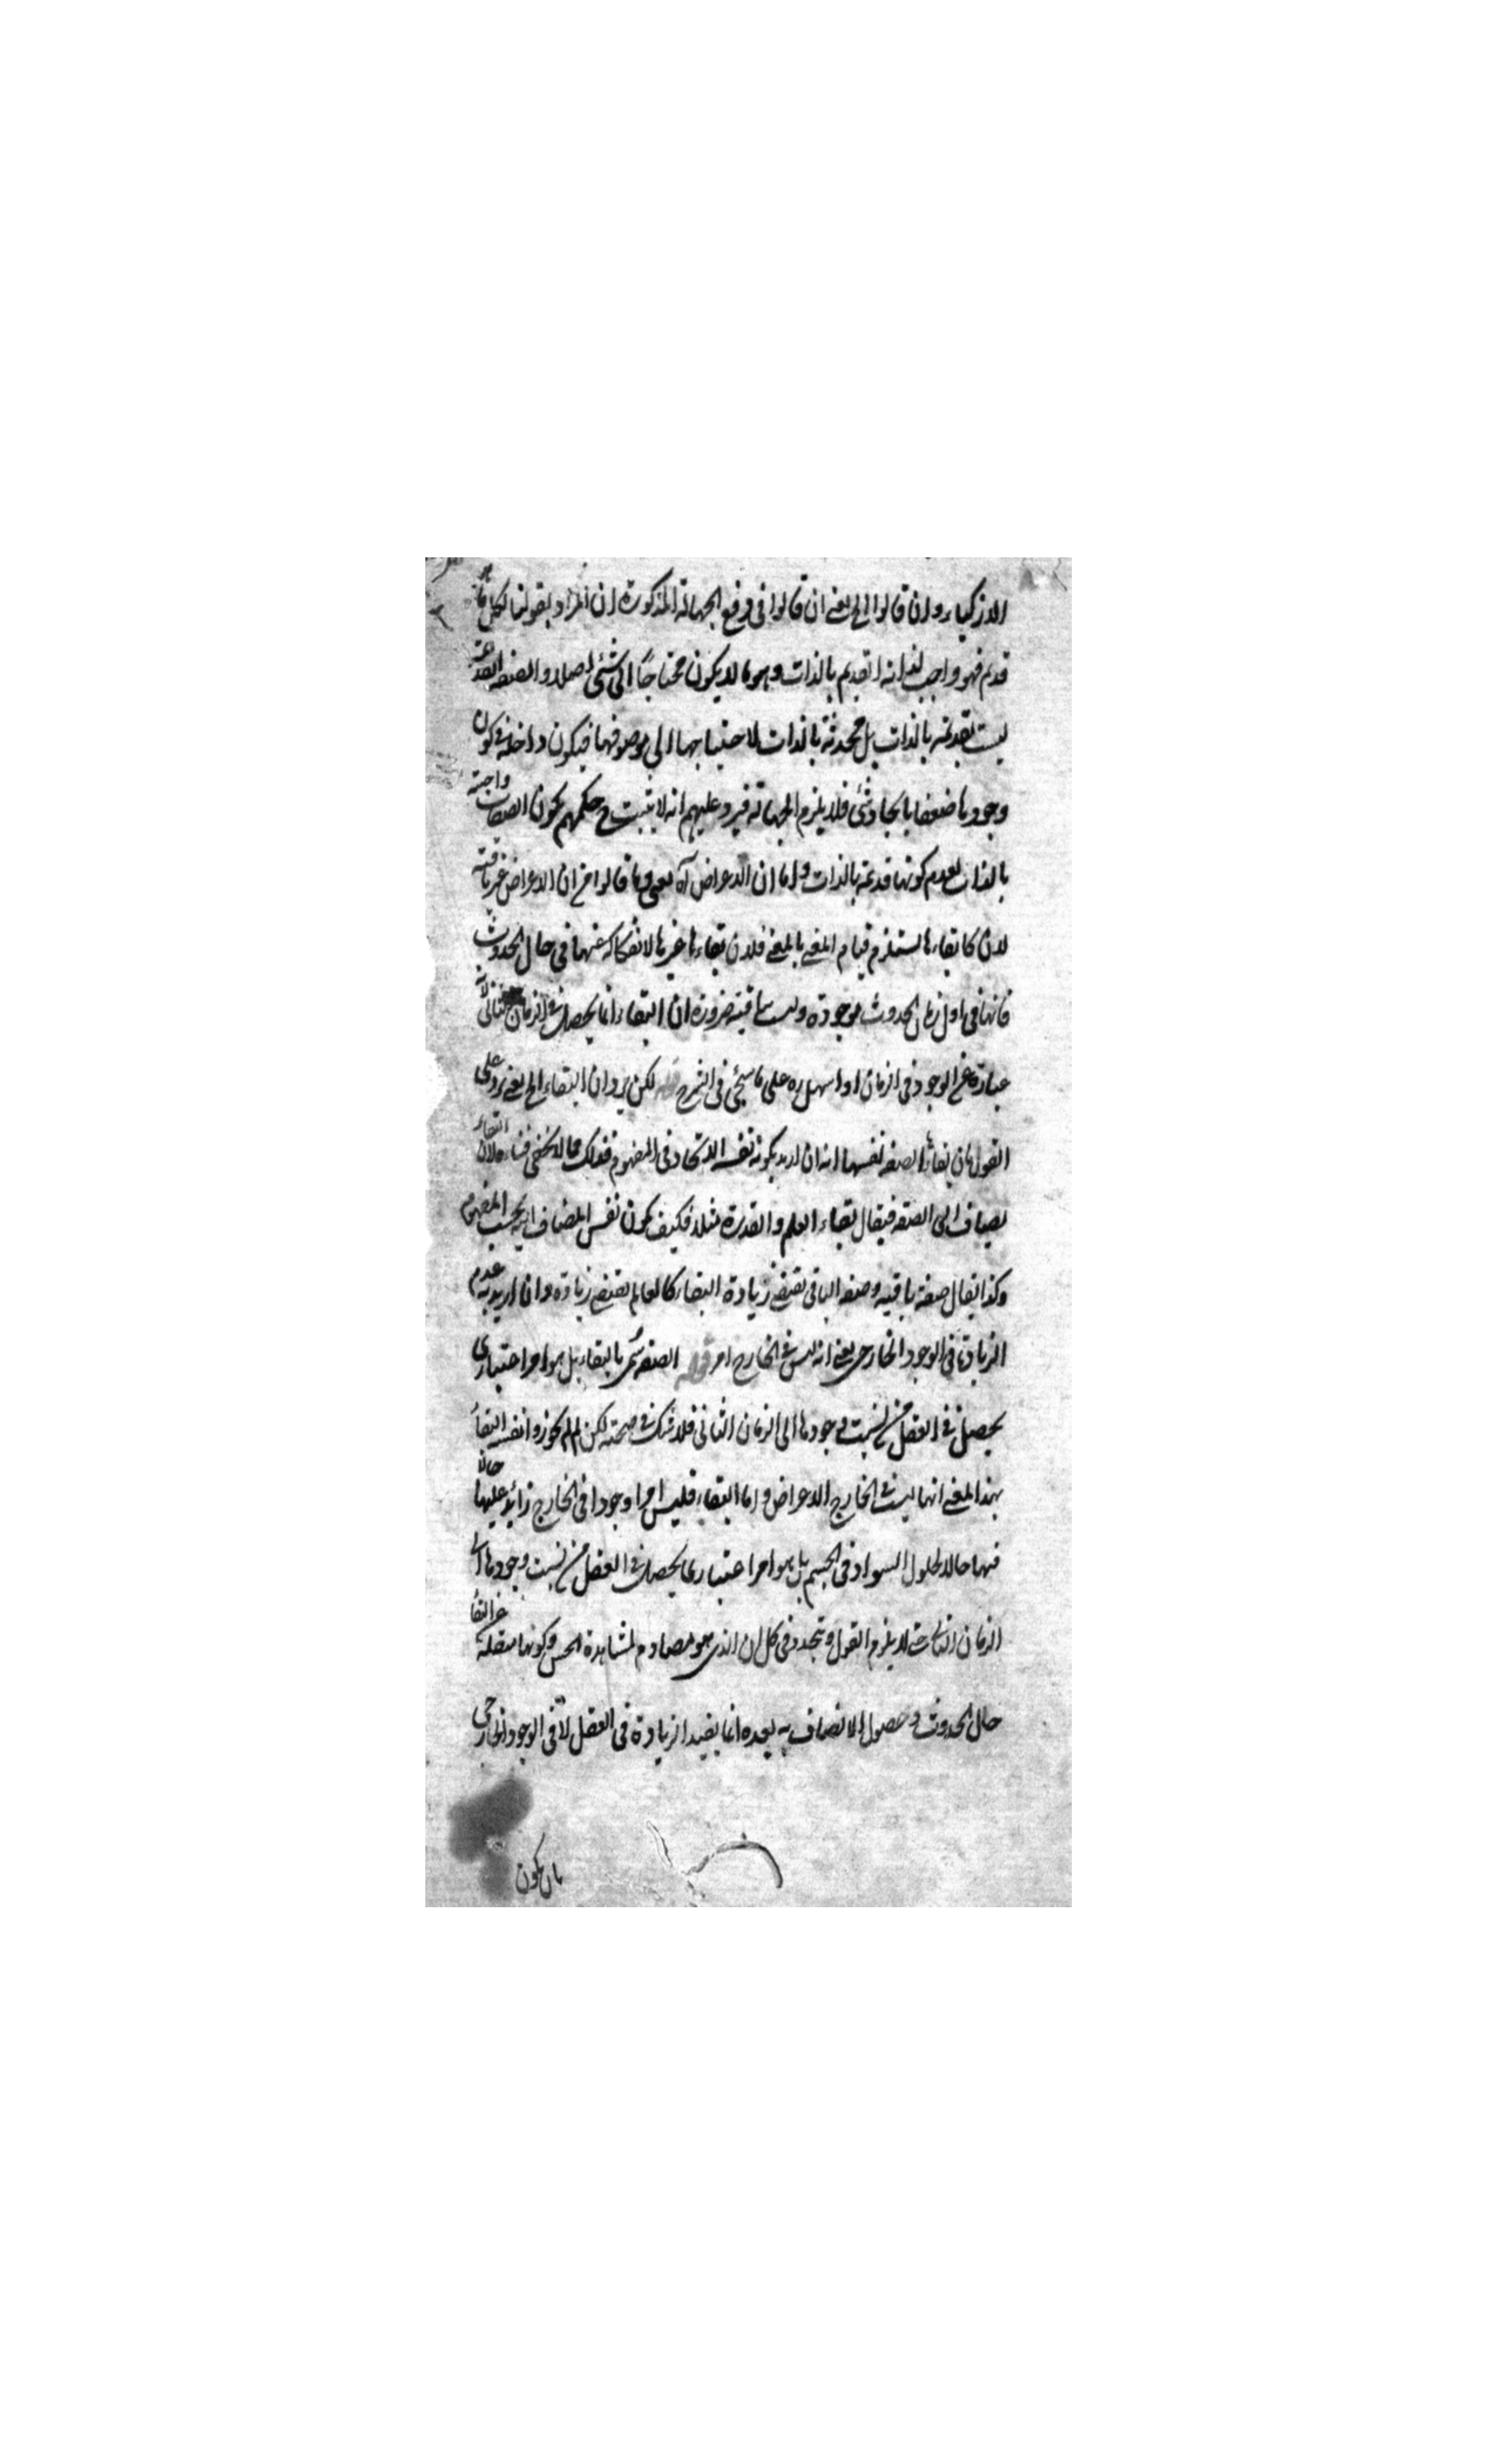 الاذكياء وان قالوا الخ يعنے ان قالوا فى دفع الجهالة المذكورة ان المراد بقولنا لكل ما هو
قديم فهو واجب لذاته القديم بالذات وهو ما لا يكون محتاجًا الى شئ اصلا والصفة القديمة
ليست بقديمة بالذات بل محدثة بالذات لاحتياجها الى موصوفها فيكون داخلة فى كون
وجودها ضعفا بايجاد شئ فلا يلزم الجهالة فيرد عليهم انه لا يثبت ح حكمهم بكون الصفات واجبة
بالذات لعدم كونها قديمة بالذات واما ان الاعراض آه يعنى وما قالوا من ان الاعراض غير باقية
لان كا بقاءها لستلزم قيام المعنے بالمعنے فلان بقاءها غيرها لانفكاكه عنها فى حال الحدوث
فانها فى اول زمان الحدوث موجودة وليست باقية ضرورة ان البقاء انما يحصل فى الزمان الثانى لانه
عبارة عن الوجود فى الزمان او اسهل ره على ما سيجئ فى الشرح قوله لكن يرد ان البقاء الخ يعنے يرد على
القول بان بقاء الصفة نفسها انه ان اريد بكونه نفسه الاتحاد فى المفهوم فذلك مما لا يخفى فساده لان البقاء
يضاف الى الصفة فيقال بقاء العلم والقدرة مثلا فكيف يكون نفس المضاف اليه بحسب المفهوم
وكذا يقال صفة باقية وصفة الباقى تقتضے زيادة البقاء كالعالم تقتضے زيادة وان اريد به عدم
الزيادة فى الوجود الخارجى يعنے انه ليس فى الخارج امر قوله الصفة سمى بالبقاء بل هو امر اعتبارى
يحصل فى العقل من نسبت وجودها الى الزمان الثانى فلا شك فى صحته لكن لم لم يجوزوا نفسه البقاء
بهذا المعنے انها ليست فى الخارج الاعراض واما البقاء فليس امرا وجودا فى الخارج زائد عليها حالا
فيها حالا لحلول السواد فى الجسم بل هو امر اعتبارى يحصل فى العقل من نسبت وجودها الى
الزمان الثانى حتى لا يلزم القول وتجدد فى كل ان الذى هو مصادم لمشاهدة الحس وكونها منفكة عن البقاء
حال الحدوث وحصول الاتصاف به بعده انما يفيد الزيادة فى العقل لا فى الوجود الخارجى
بان يكون